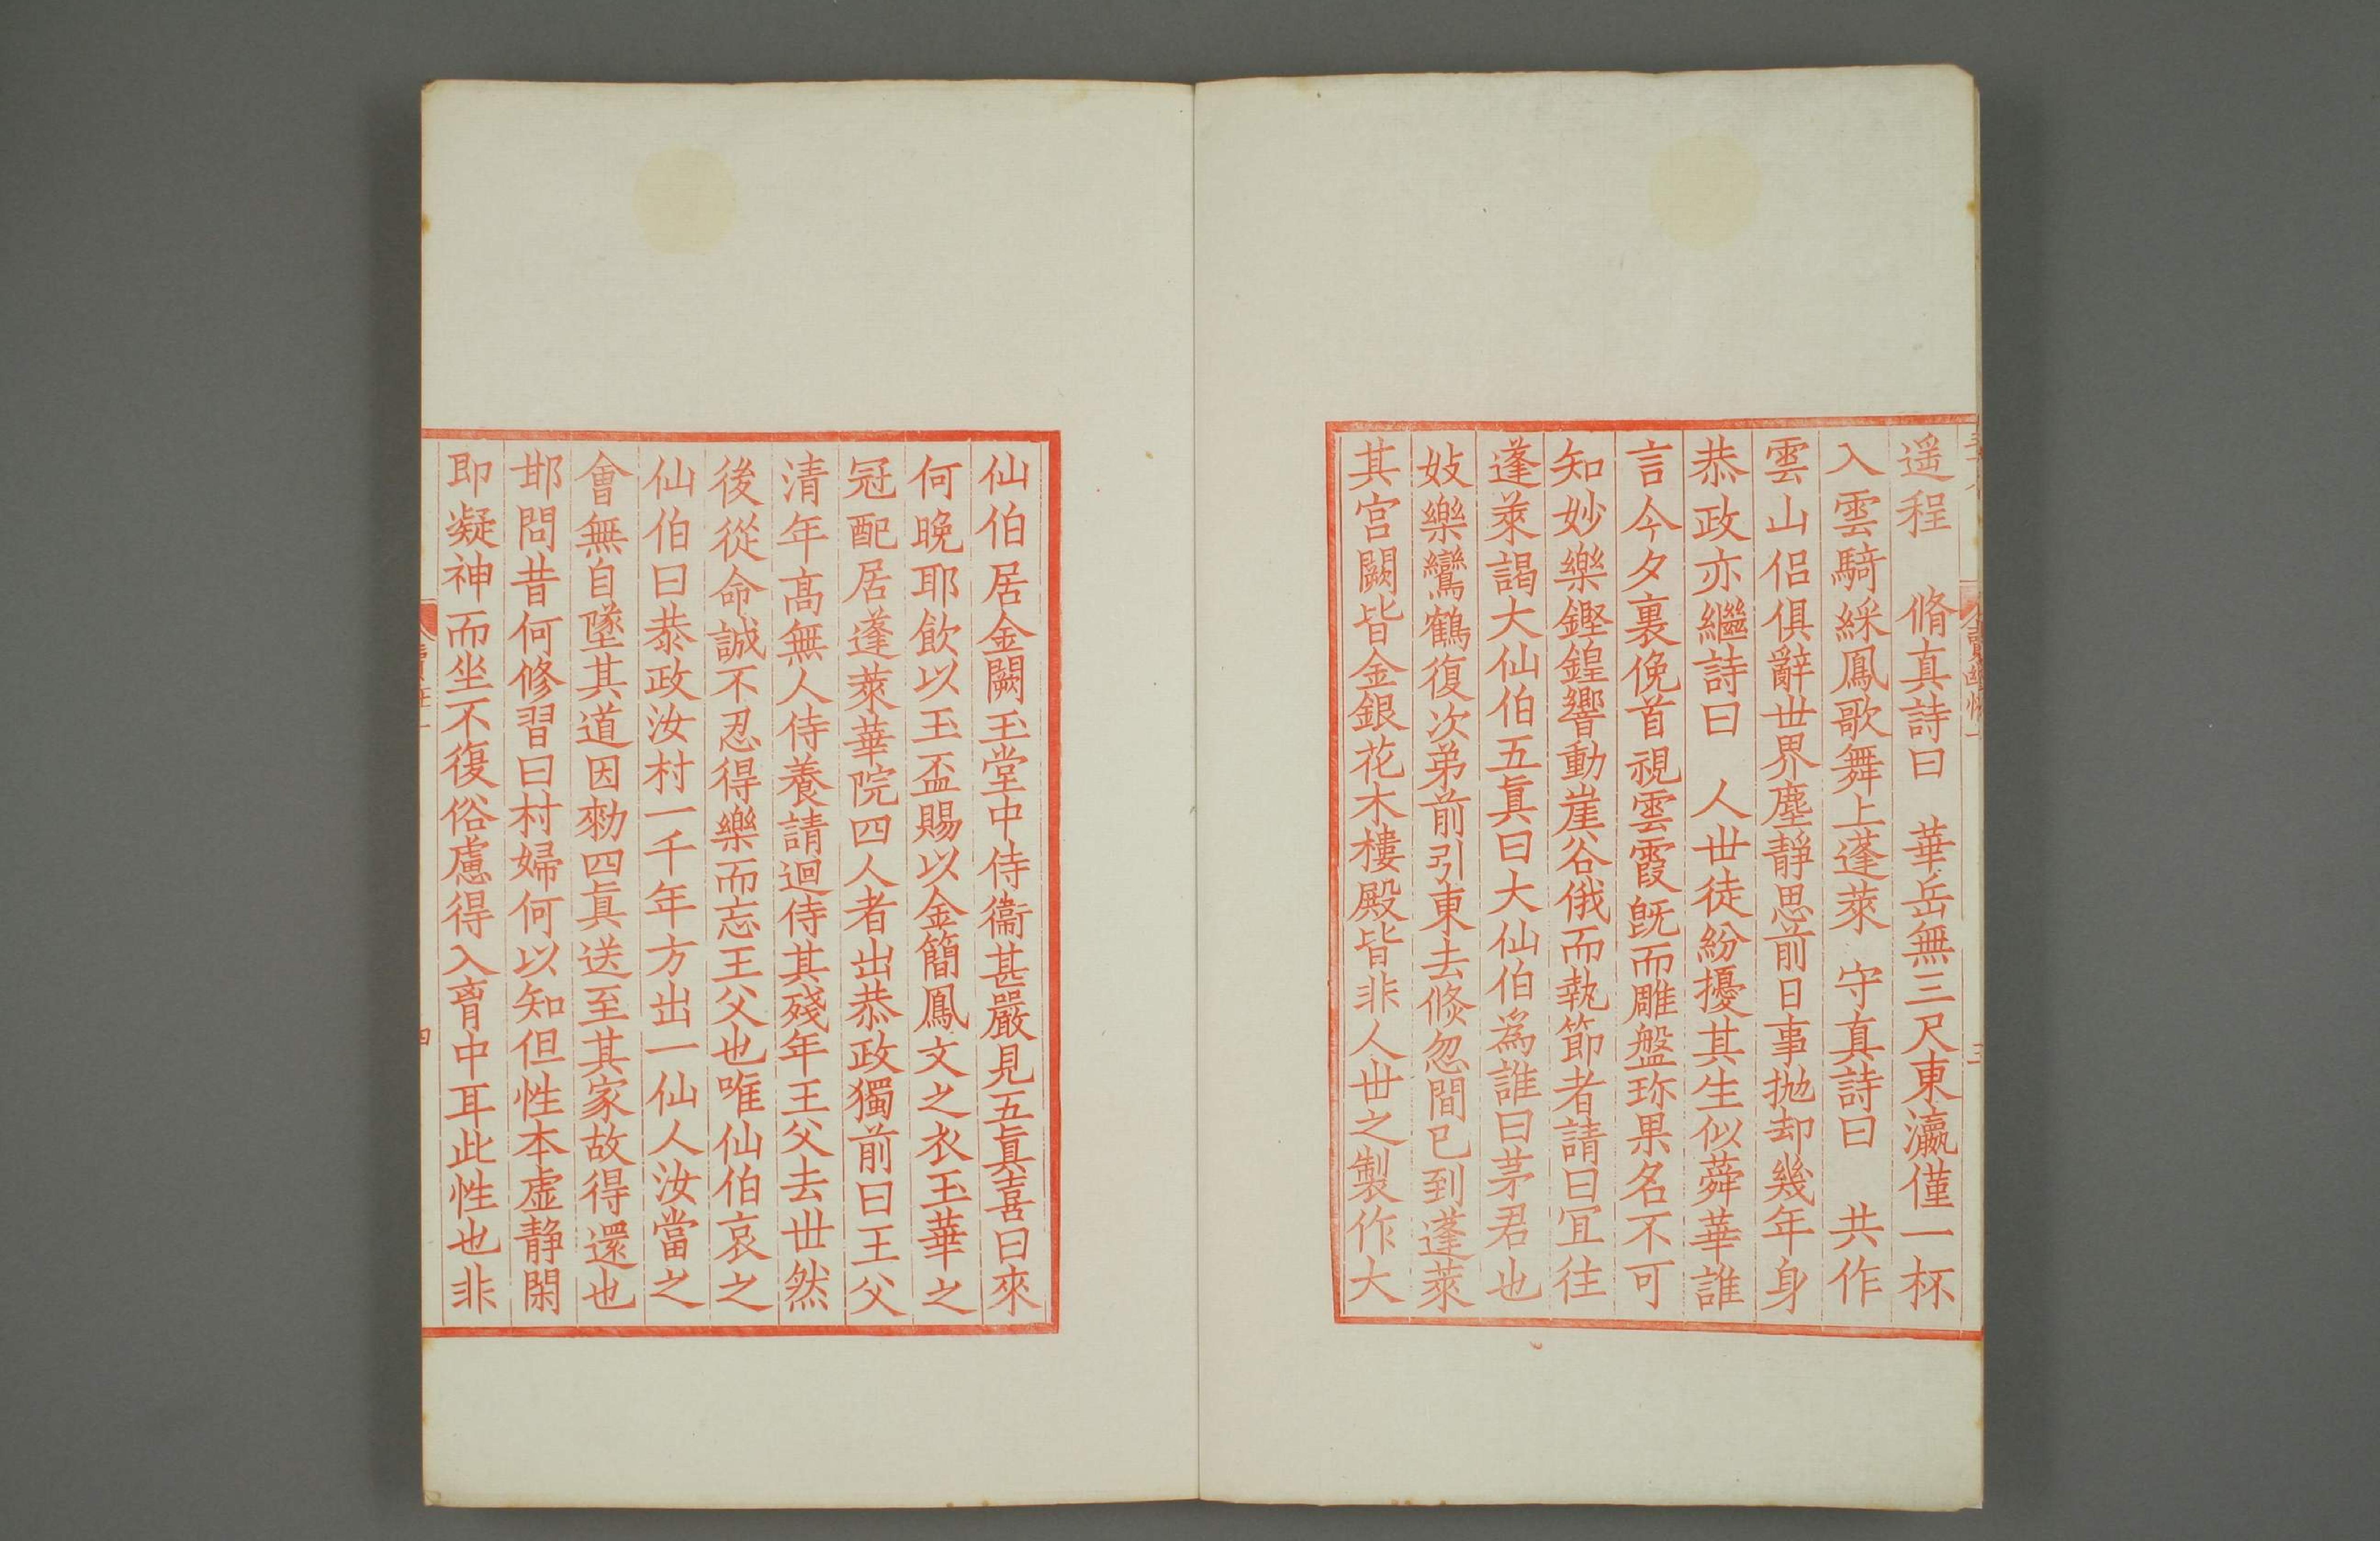 遥程　脩真詩曰　華岳無三尺東瀛僅一杯
入雲騎綵鳳歌舞上蓬萊　守真詩曰　共作
雲山侶俱辭世界塵靜思前日事抛却幾年身
恭政亦繼詩曰　人世徒紛擾其生似蕣華誰
言今夕裏俛首視雲霞旣而雕盤珎果名不可
知妙樂鏗鍠響動崖谷俄而執節者請曰冝往
蓬萊謁大仙伯五眞曰大仙伯為誰曰茅君也
妓樂鸞鶴復次弟前引東去倐忽間已到蓬萊
其宮闕皆金銀花木樓殿皆非人世之製作大
仙伯居金闕玉堂中侍衞甚嚴見五眞喜曰來
何晚耶飲以玉盃賜以金簡鳳文之衣玉華之
冠配居蓬萊華院四人者出恭政獨前曰王父
清年高無人侍養請迴侍其殘年王父去世然
後從命誠不忍得樂而忘王父也唯仙伯哀之
仙伯曰恭政汝村一千年方出一仙人汝當之
會無自墜其道因勑四眞送至其家故得還也
邯問昔何修習曰村婦何以知但性本虛靜閑
即凝神而坐不復俗慮得入胷中耳此性也非
四